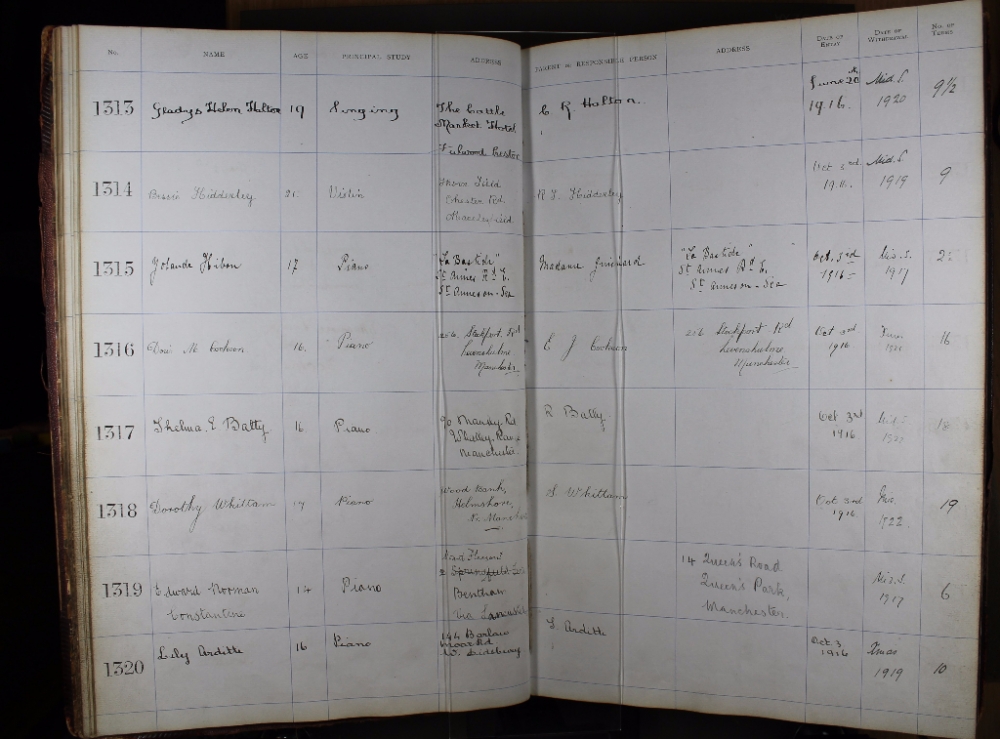 No. NAME AGE PRINCIPAL STUDY ADDRESS PARENT or RESPONSIBLE PERSON ADDRESS DATE OF ENTRY DATE OF WITHDRAWAL No. OF TERMS
1313 Gladys Helen Holton 19 Singing The Cattle C R Holton. June 20th Mid. S. 9½
Market Hotel 1916. 1920
Fulwood Preston
1314 Bessie Kidderley 21 Violin Chester Rd. R. J. Kidderley Oct 3rd Mid. S. 9
Macclesfield 1916. 1919
1315 Yolande 17 Piano "La Bastide" Madame "La Bastide" Oct. 3rd Mid. S. 2
St Annes Rd E. St Annes Rd E. 1916 1917
St Annes on-Sea St Annes on-Sea
1316 M. Cochran 16. Piano 256 Stockport Rd E J Cochran 256 Stockport Rd Oct 3rd 16
Levenshulme Levenshulme 1916
Manchester Manchester
1317 Thelma. E Batty 16 Piano. R Batty Oct 3rd 18
Whalley Range 1916
Manchester.
1318 Dorothy Whittam 17 Piano Wood Bank, S Whittam Oct 3rd 19
Helmshore, 1916 1922.
Nr. Manchester
1319 Edward Norman 14 Piano 14 Queen's Road Mid. S. 6
Constantine Bentham Queen's Park, 1917
Via Lancaster Manchester.
1320 Lily Arditti 16 Piano 144 Barlow Arditti Oct 3 Xmas 10
Moor Rd 1916 1919
W. Didsbury